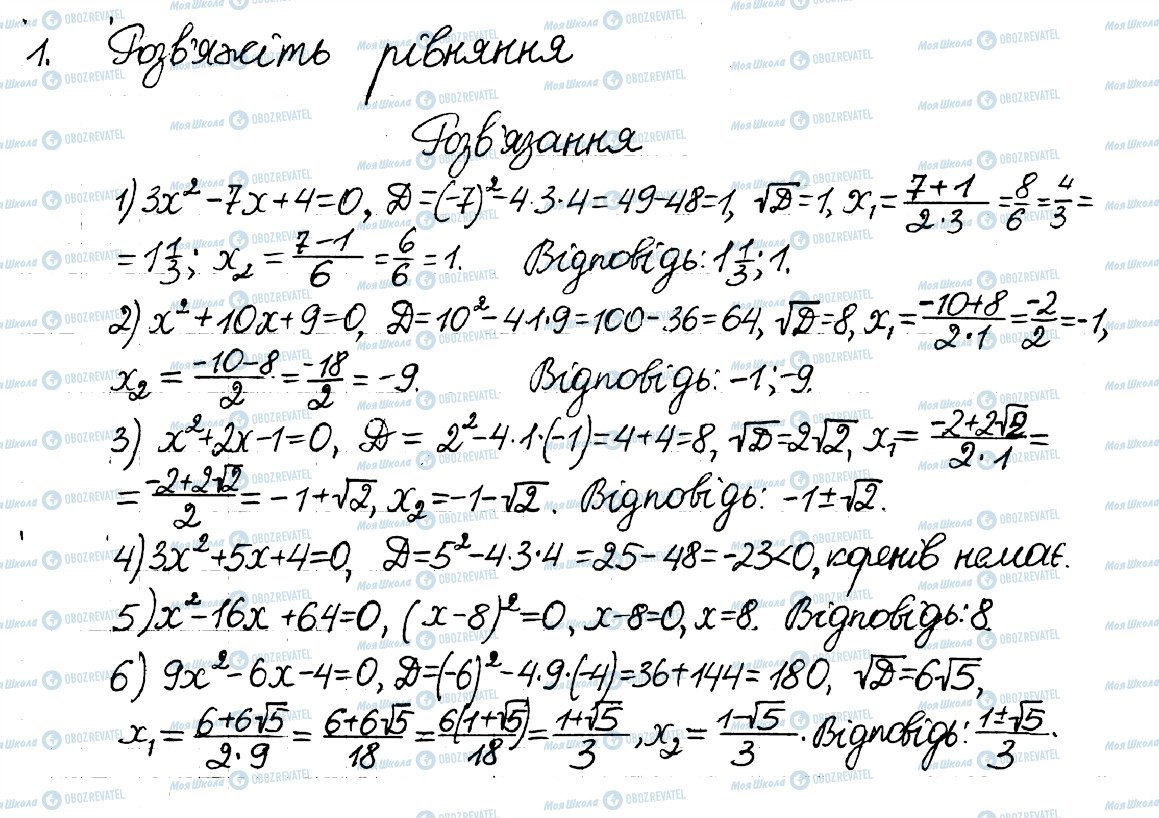 1. Розв'яжіть рівняння
Розв'язання
1) 3x² - 7x + 4 = 0, D = (-7)² - 4·3·4 = 49 - 48 = 1, √D = 1, x₁ = (7+1)/(2·3) = 8/6 = 4/3 =
= 1 1/3; x₂ = (7-1)/6 = 6/6 = 1. Відповідь: 1 1/3; 1.
2) x² + 10x + 9 = 0, D = 10² - 4·1·9 = 100 - 36 = 64, √D = 8, x₁ = (-10+8)/(2·1) = -2/2 = -1,
x₂ = (-10-8)/2 = -18/2 = -9. Відповідь: -1; -9.
3) x² + 2x - 1 = 0, D = 2² - 4·1·(-1) = 4 + 4 = 8, √D = 2√2, x₁ = (-2+2√2)/(2·1) =
= (-2+2√2)/2 = -1+√2, x₂ = -1-√2. Відповідь: -1±√2.
4) 3x² + 5x + 4 = 0, D = 5² - 4·3·4 = 25 - 48 = -23 < 0, коренів немає.
5) x² - 16x + 64 = 0, (x-8)² = 0, x-8 = 0, x = 8. Відповідь: 8.
6) 9x² - 6x - 4 = 0, D = (-6)² - 4·9·(-4) = 36 + 144 = 180, √D = 6√5,
x₁ = (6+6√5)/(2·9) = (6+6√5)/18 = 6(1+√5)/18 = (1+√5)/3, x₂ = (1-√5)/3. Відповідь: (1±√5)/3.